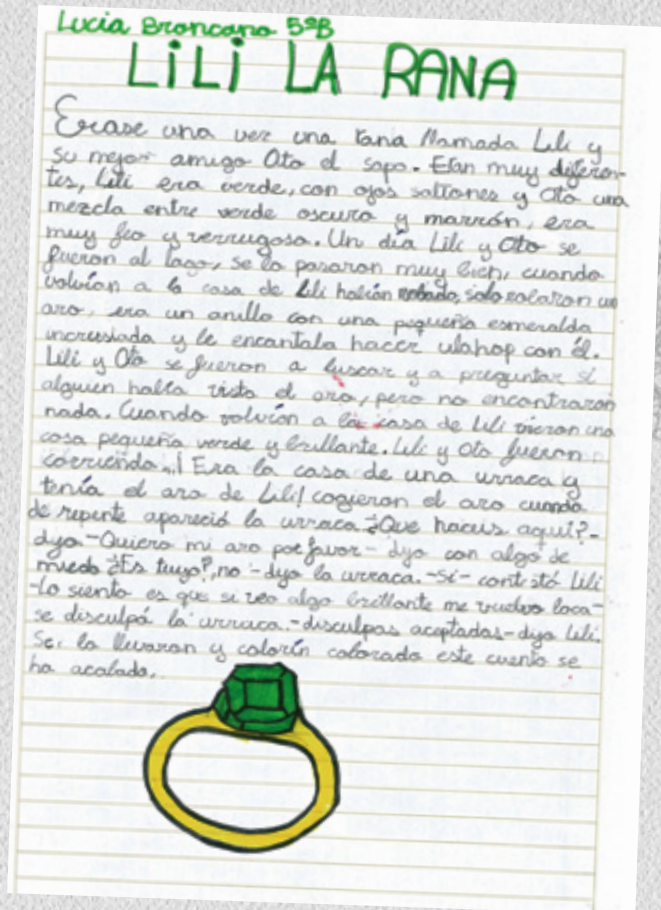 Lucia Broncano 5ºB
LiLi LA RANA
Erase una vez una rana llamada Lili y
su mejor amigo Oto el sapo. Eran muy diferen-
tes, Lili era verde, con ojos saltones y Oto una
mezcla entre verde oscuro y marrón, era
muy feo y verrugoso. Un día Lili y Oto se
fueron al lago, se lo pasaron muy bien, cuando
volvían a la casa de Lili habían robado, solo robaron un
aro, era un anillo con una pequeña esmeralda
incrustada y le encantaba hacer ulahop con él.
Lili y Oto se fueron a buscar y a preguntar si
alguien había visto el aro, pero no encontraron
nada. Cuando volvían a la casa de Lili vieron una
cosa pequeña verde y brillante. Lili y Oto fueron
corriendo...¡Era la casa de una urraca y
tenía el aro de Lili! cogieron el aro cuando
de repente apareció la urraca ¿Que haceis aquí?-
dijo -Quiero mi aro por favor- dijo con algo de
miedo ¿Es tuyo?, no -dijo la urraca. -Si- contestó Lili
-Lo siento es que si veo algo brillante me vuelvo loca-
se disculpó la urraca.-disculpas aceptadas-dijo Lili.
Se lo llevaron y colorín colorado este cuento se
ha acabado.